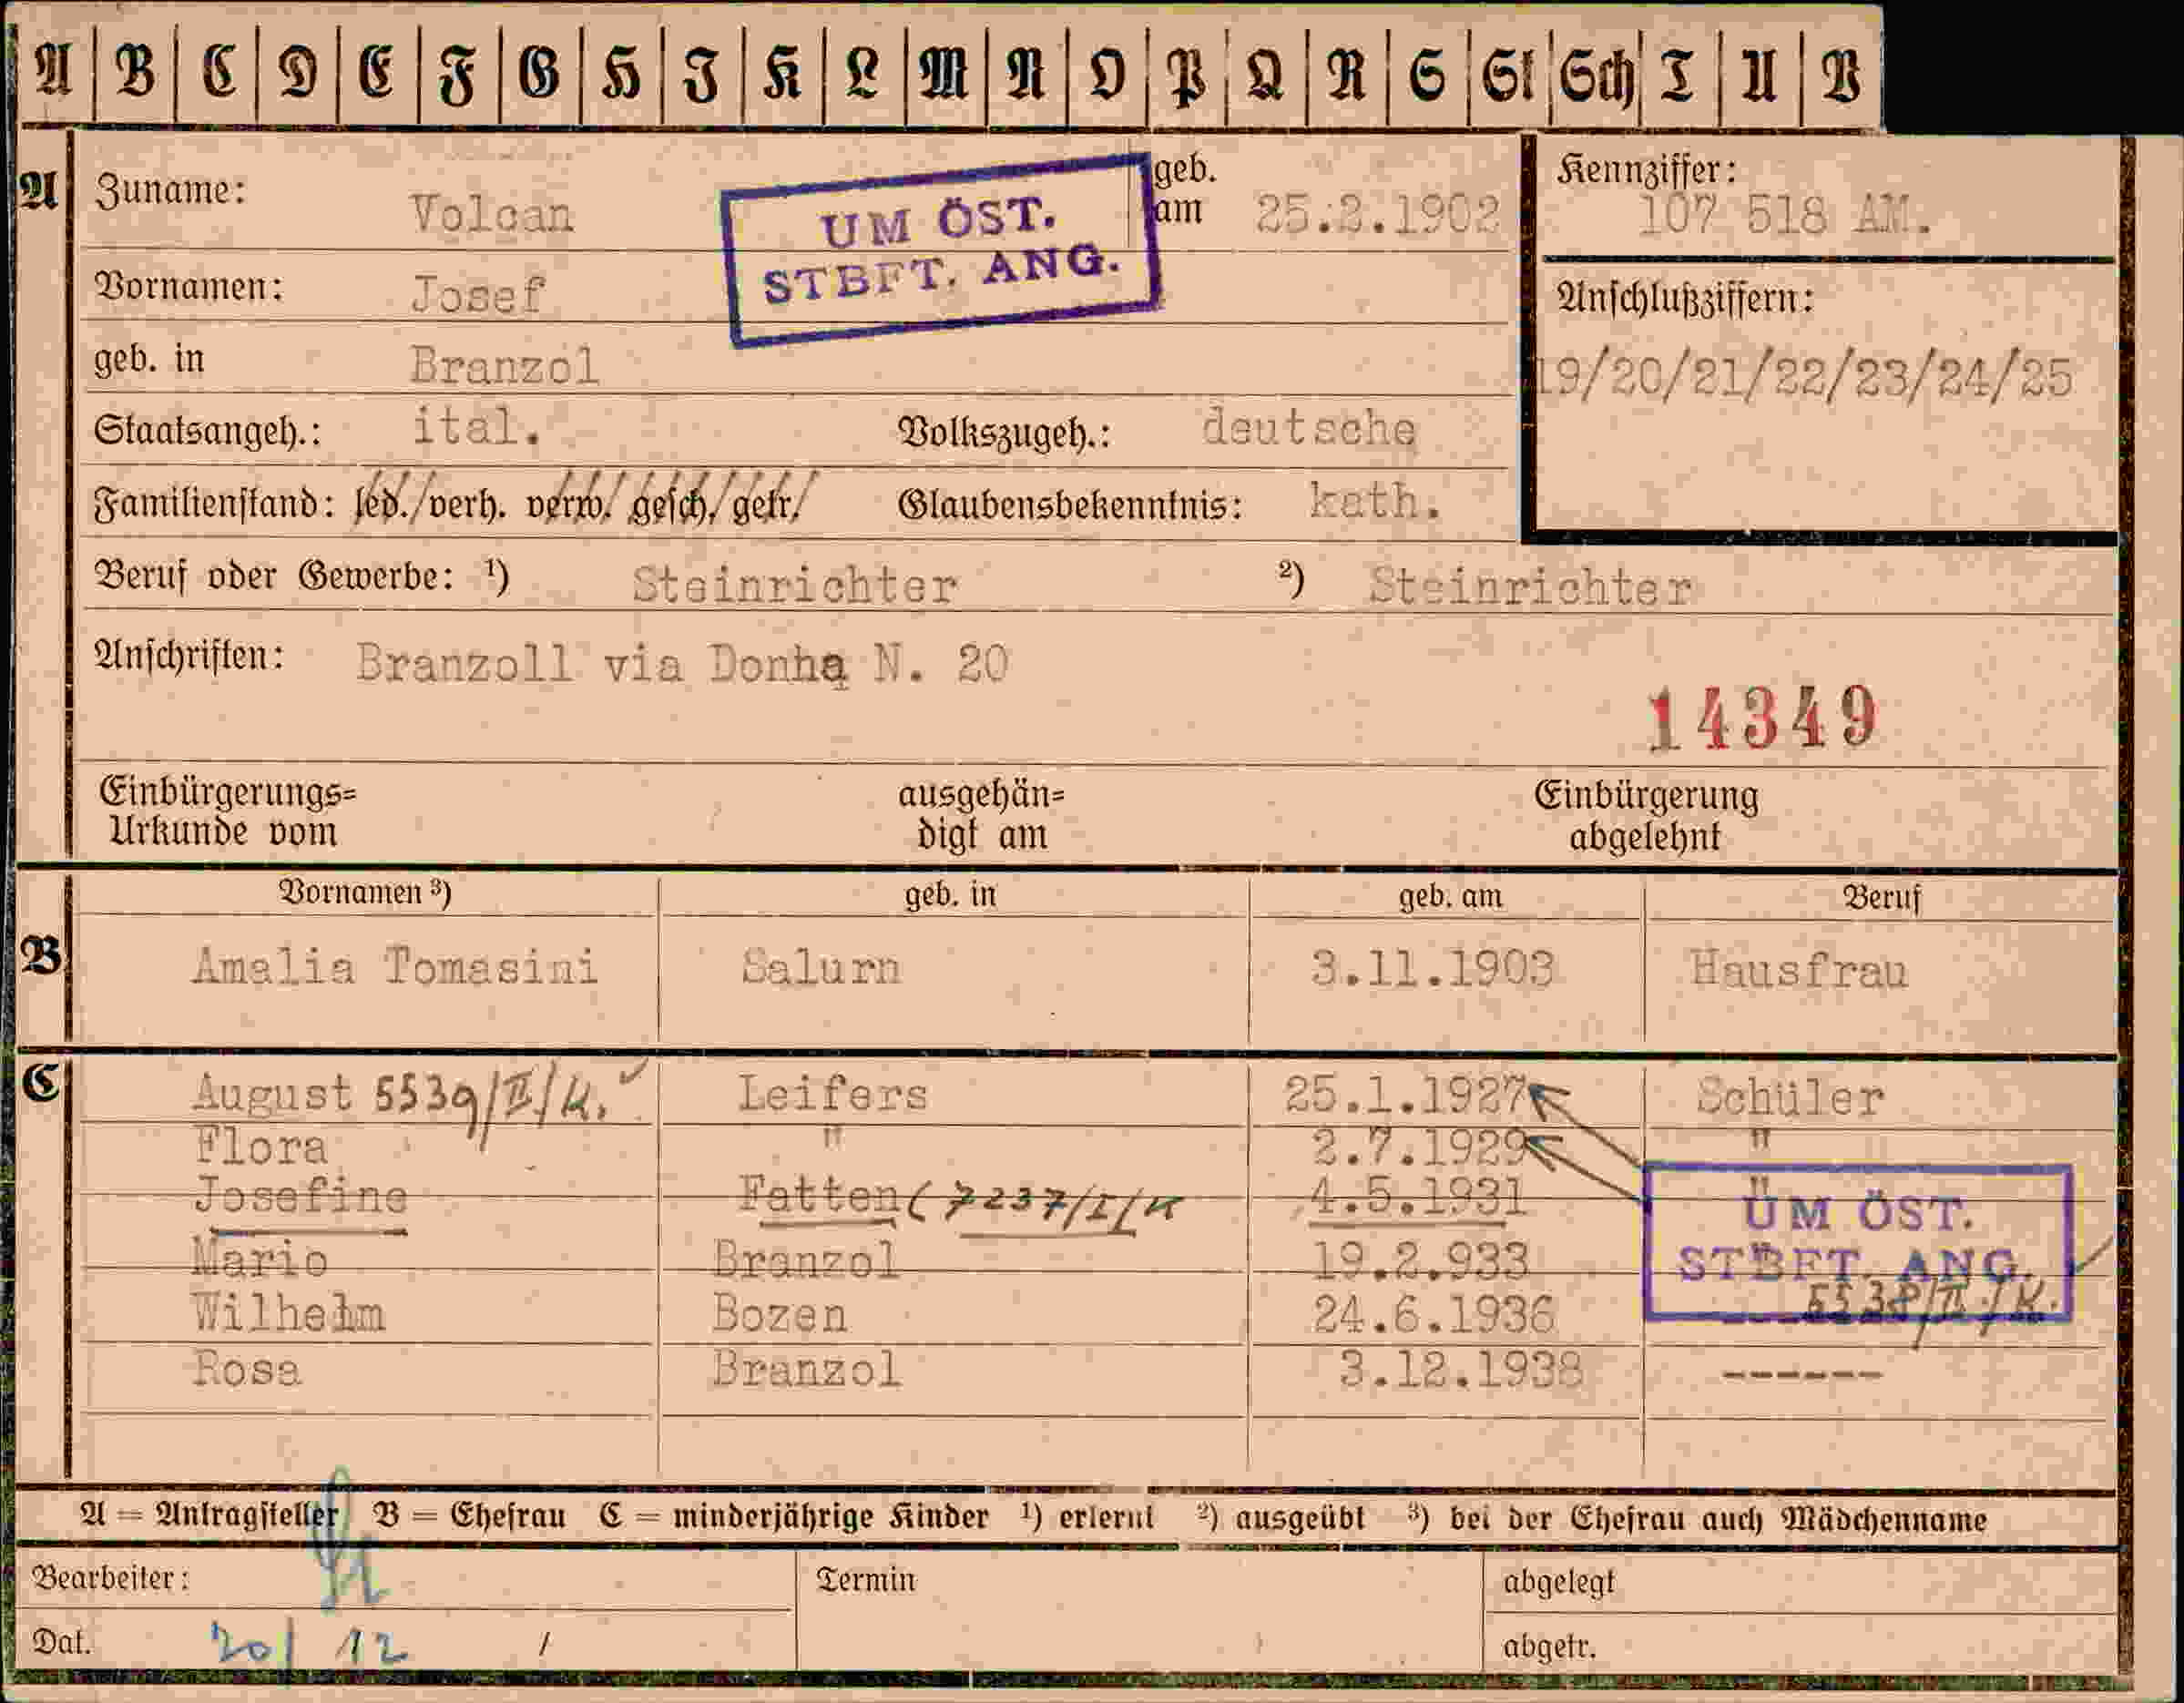 A B C D E F G H J K L M N O P Q R S St Sch T U V
A
Zuname: Volcan
UM ÖST.
STBFT. ANG.
geb. am 25.2.1902
Kennziffer:
107 518 AM.
Vornamen: Josef
Anschlußziffern:
19/20/21/22/23/24/25
geb. in Branzol
Staatsangeh.: ital. Volkszugeh.: deutsche
Familienstand: led./verh. verw./gesch./getr./ Glaubensbekenntnis: kath.
Beruf oder Gewerbe: ¹) Steinrichter ²) Steinrichter
Anschriften: Branzoll via Donha N. 20
14349
Einbürgerungs= ausgehän= Einbürgerung
Urkunde vom digt am abgelehnt
B
Vornamen ³) geb. in geb. am Beruf
Amalia Tomasini Salurn 3.11.1903 Hausfrau
C
August 5539/II/K. Leifers 25.1.1927 Schüler
Flora " 2.7.1929 "
Josefine Fatten (7237/I/K 4.5.1931 "
UM ÖST.
Mario Branzol 19.2.933 "
STBFT. ANG.
5538/II./K.
Wilhelm Bozen 24.6.1936
Rosa Branzol 3.12.1938 ------
A = Antragsteller B = Ehefrau C = minderjährige Kinder ¹) erlernt ²) ausgeübt ³) bei der Ehefrau auch Mädchenname
Bearbeiter: Termin abgelegt
Dat. 20/ 12 / abgetr.